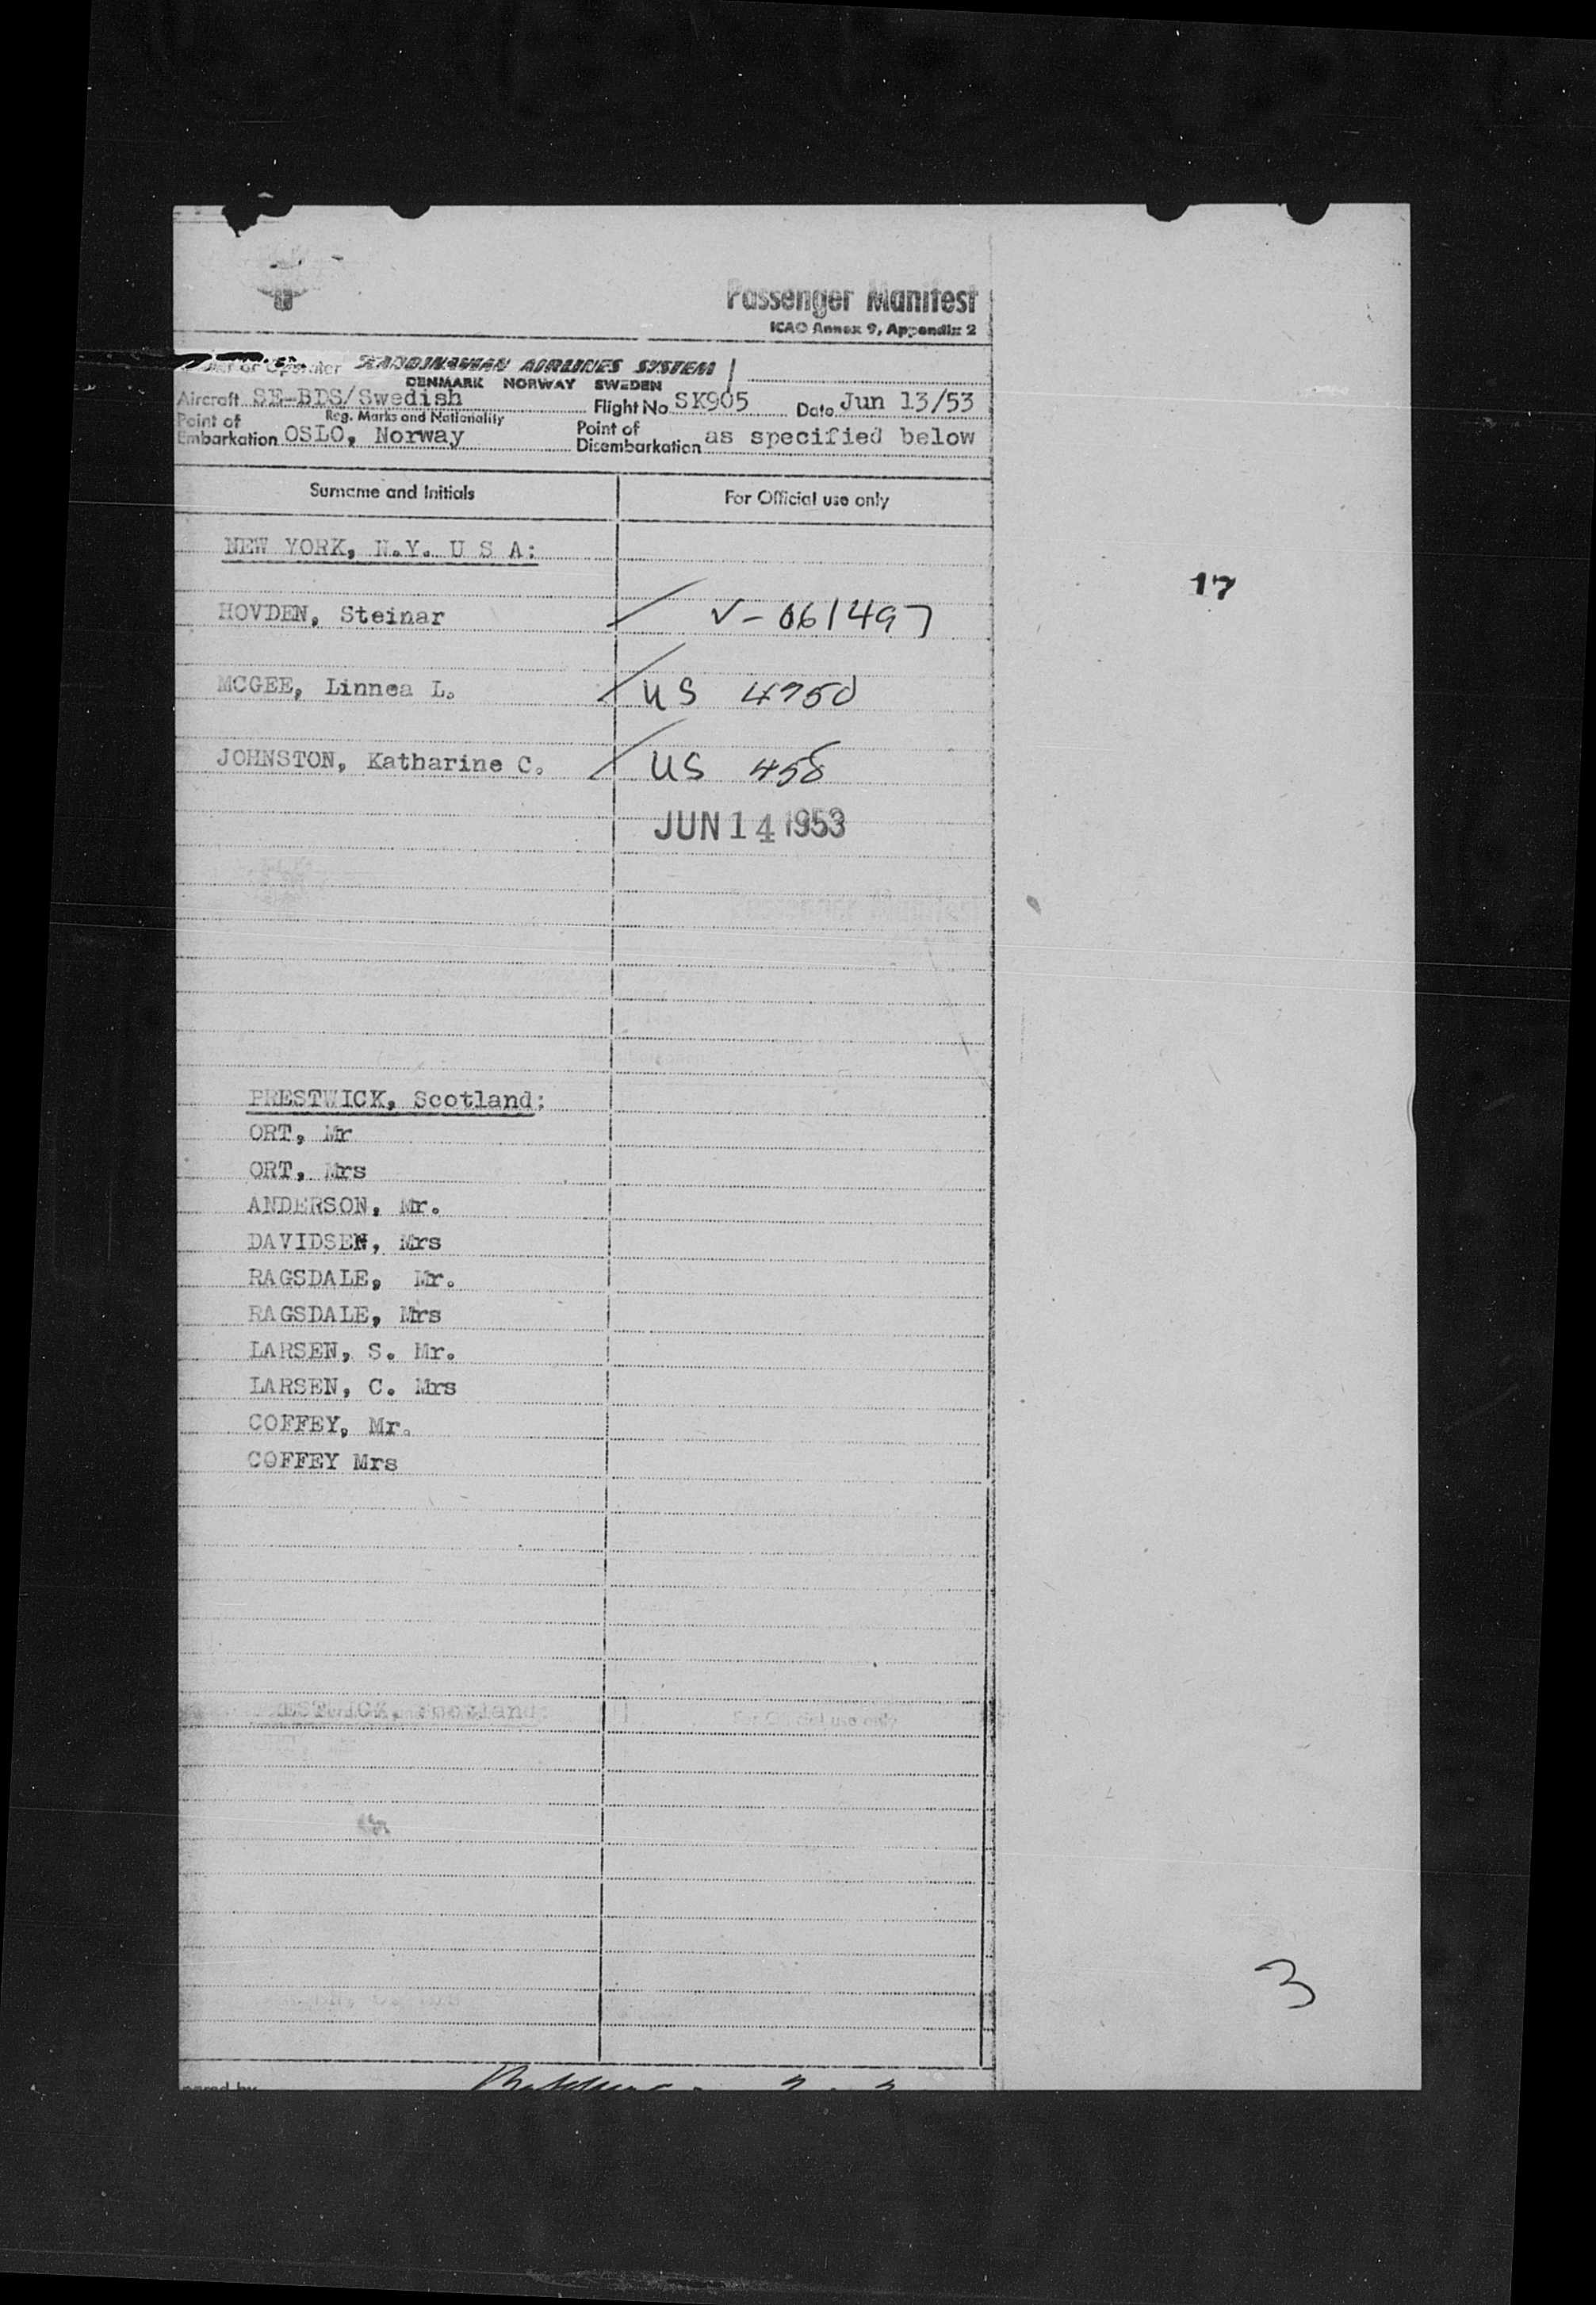 Passenger Manifest
ICAO Annex 9, Appendix 2
or Operator SCANDINAVIAN AIRLINES SYSTEM
DENMARK NORWAY SWEDEN
Aircraft SE-BDS/Swedish Flight No. SK905 Date Jun 13/53
Reg. Marks and Nationality
Point of Embarkation OSLO, Norway Point of Disembarkation as specified below
Surname and Initials For Official use only
NEW YORK, N.Y. U S A:
17
HOVDEN, Steinar / V-061497
MCGEE, Linnea L. / US 4750
JOHNSTON, Katharine C. / US 458
JUN 14 1953
PRESTWICK, Scotland:
ORT, Mr
ORT, Mrs
ANDERSON, Mr.
DAVIDSEN, Mrs
RAGSDALE, Mr.
RAGSDALE, Mrs
LARSEN, S. Mr.
LARSEN, C. Mrs
COFFEY, Mr.
COFFEY Mrs
3